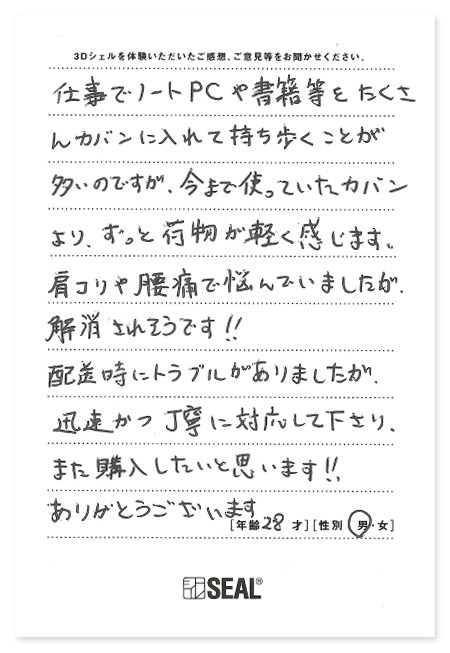 3Dシェルを体験いただいたご感想、ご意見等をお聞かせください。
仕事でノートPCや書籍等をたくさ
んカバンに入れて持ち歩くことが
多いのですが、今まで使っていたカバン
より、ずっと荷物が軽く感じます。
肩コリや腰痛で悩んでいましたが、
解消されそうです!!
配送時にトラブルがありましたが、
迅速かつ丁寧に対応して下さり、
また購入したいと思います!!
ありがとうございます
[年齢 28 才][性別 男・女]
SEAL®